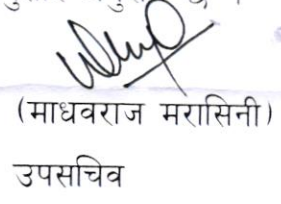 (माधवराज मरासिनी)
उपसचिव